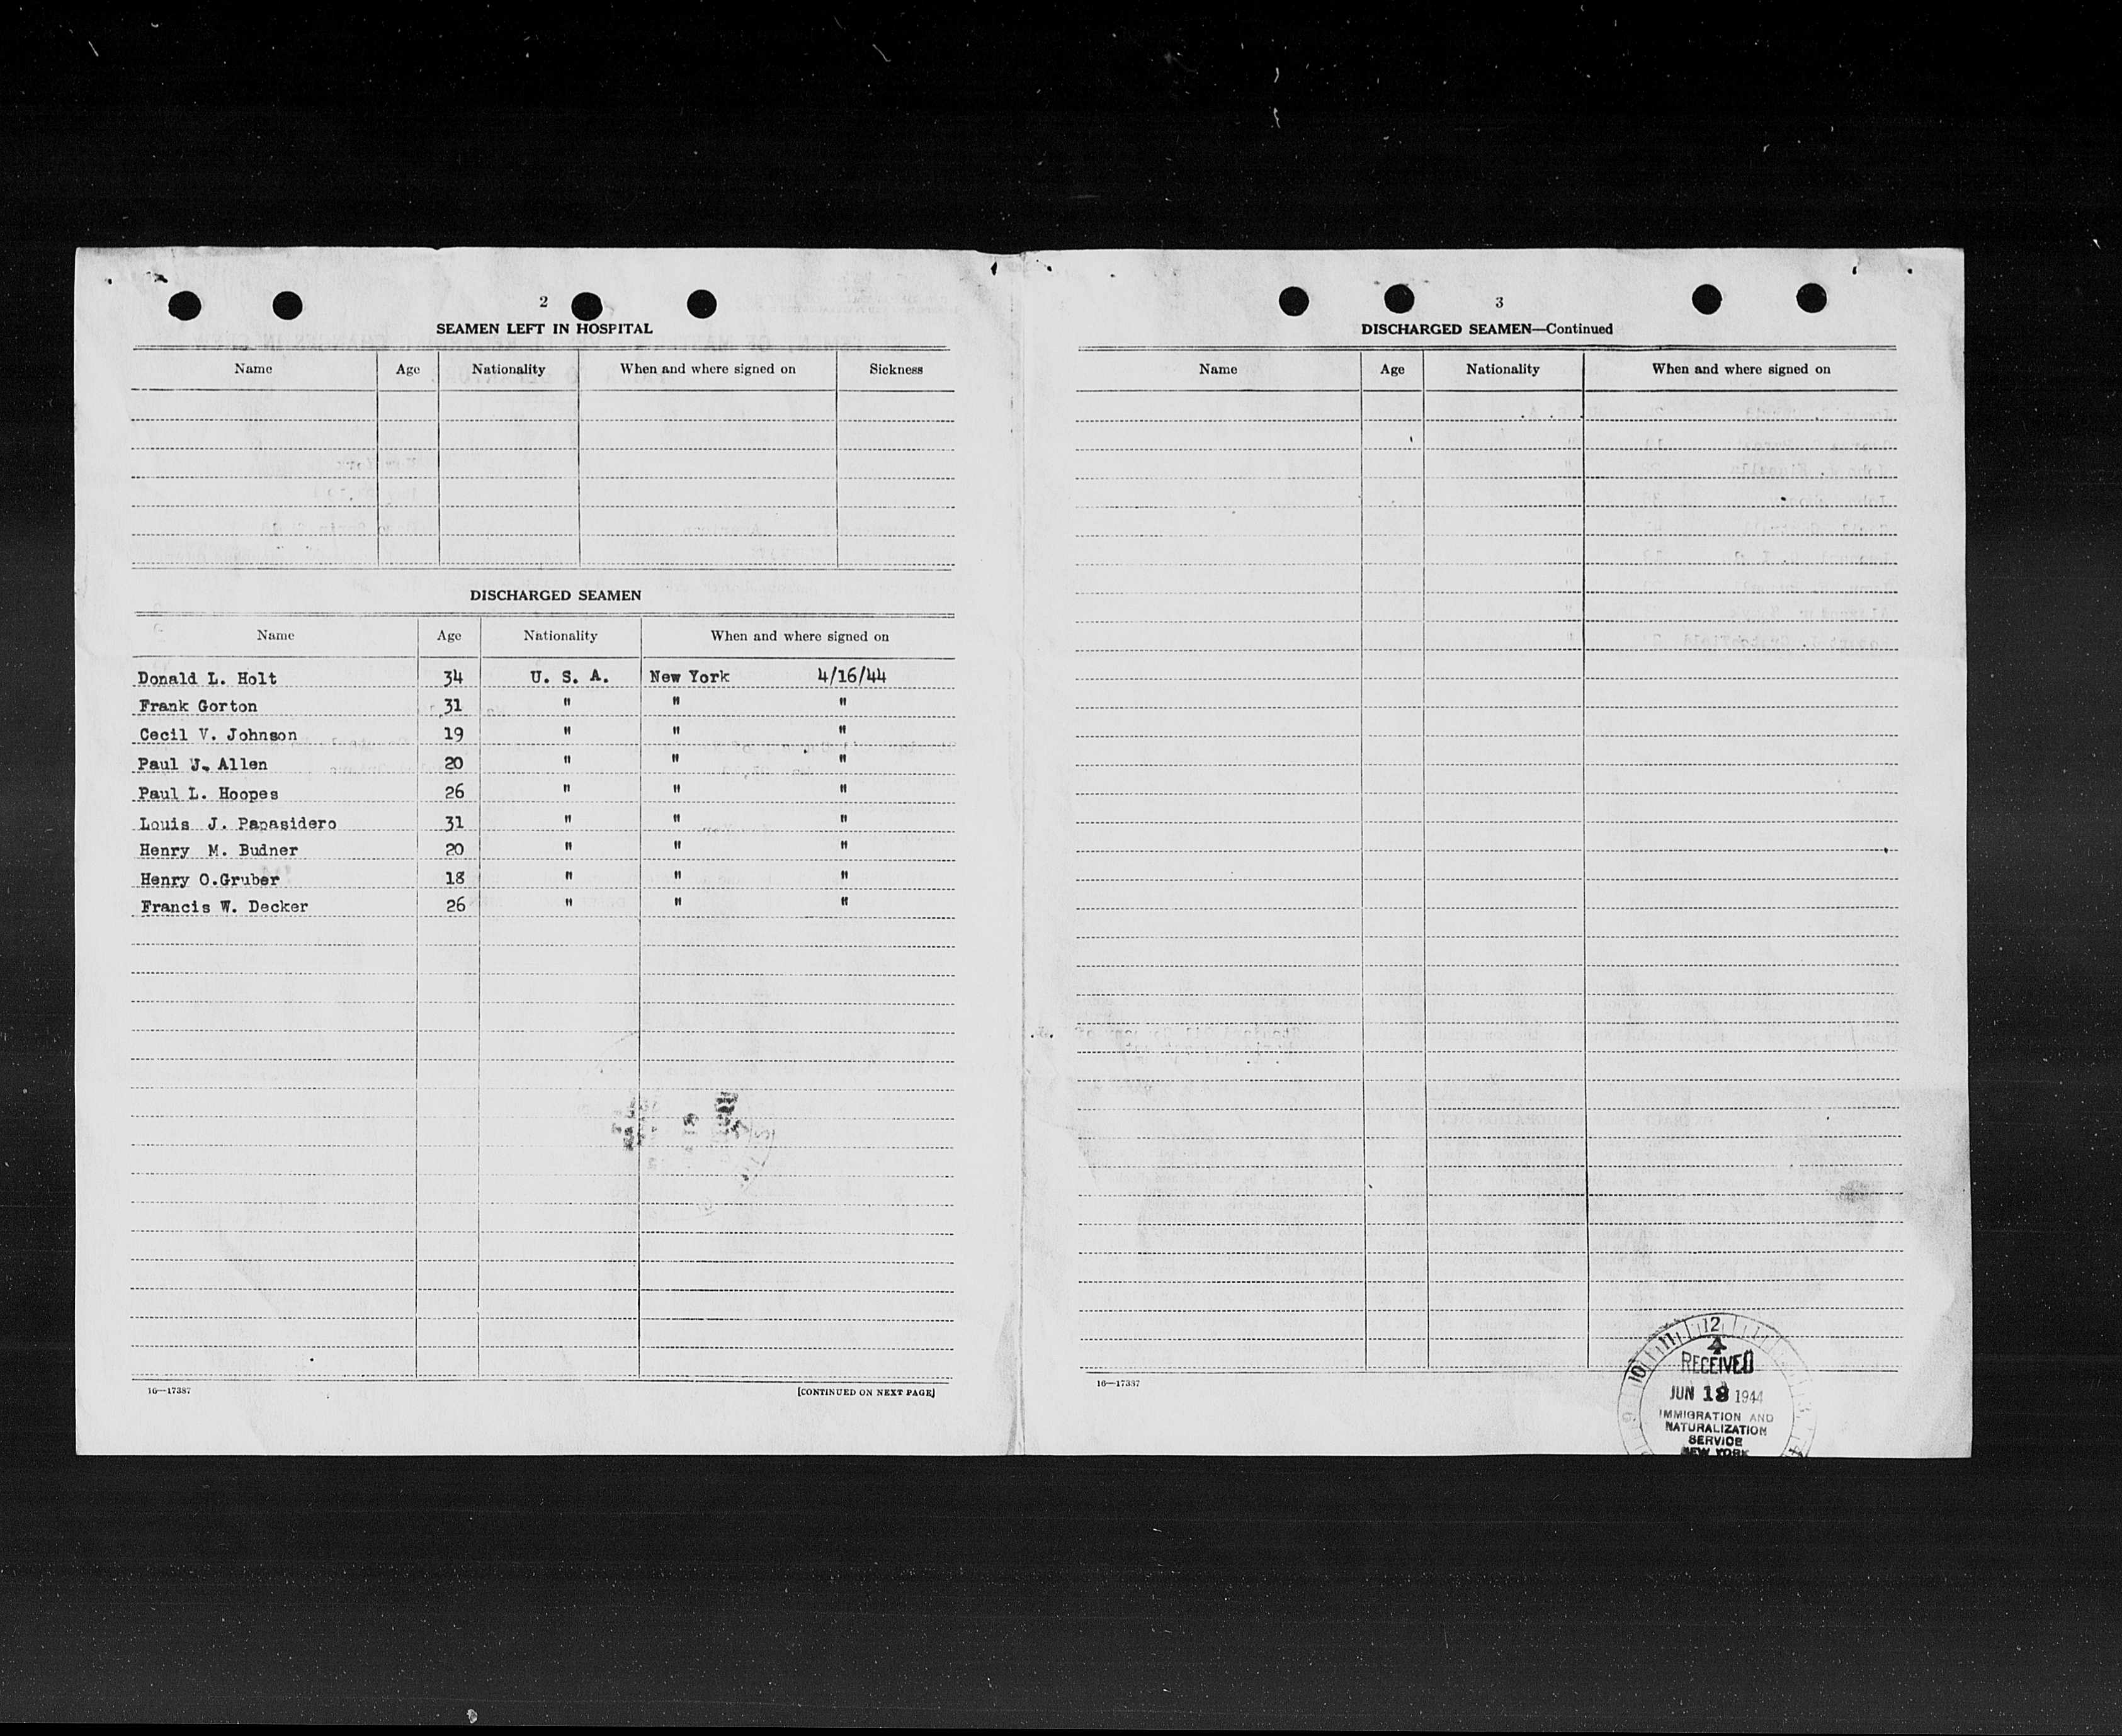 2
SEAMEN LEFT IN HOSPITAL
Name Age Nationality When and where signed on Sickness
DISCHARGED SEAMEN
Name Age Nationality When and where signed on
Donald L. Holt 34 U. S. A. New York 4/16/44
Frank Gorton 31 " " "
Cecil V. Johnson 19 " " "
Paul J. Allen 20 " " "
Paul L. Hoopes 26 " " "
Louis J. Papasidero 31 " " "
Henry M. Budner 20 " " "
Henry O.Gruber 18 " " "
Francis W. Decker 26 " " "
16—17387
[CONTINUED ON NEXT PAGE]
3
DISCHARGED SEAMEN—Continued
Name Age Nationality When and where signed on
16—17387
9 10 11 12
RECEIVED
JUN 18 1944
IMMIGRATION AND
NATURALIZATION
SERVICE
NEW YORK